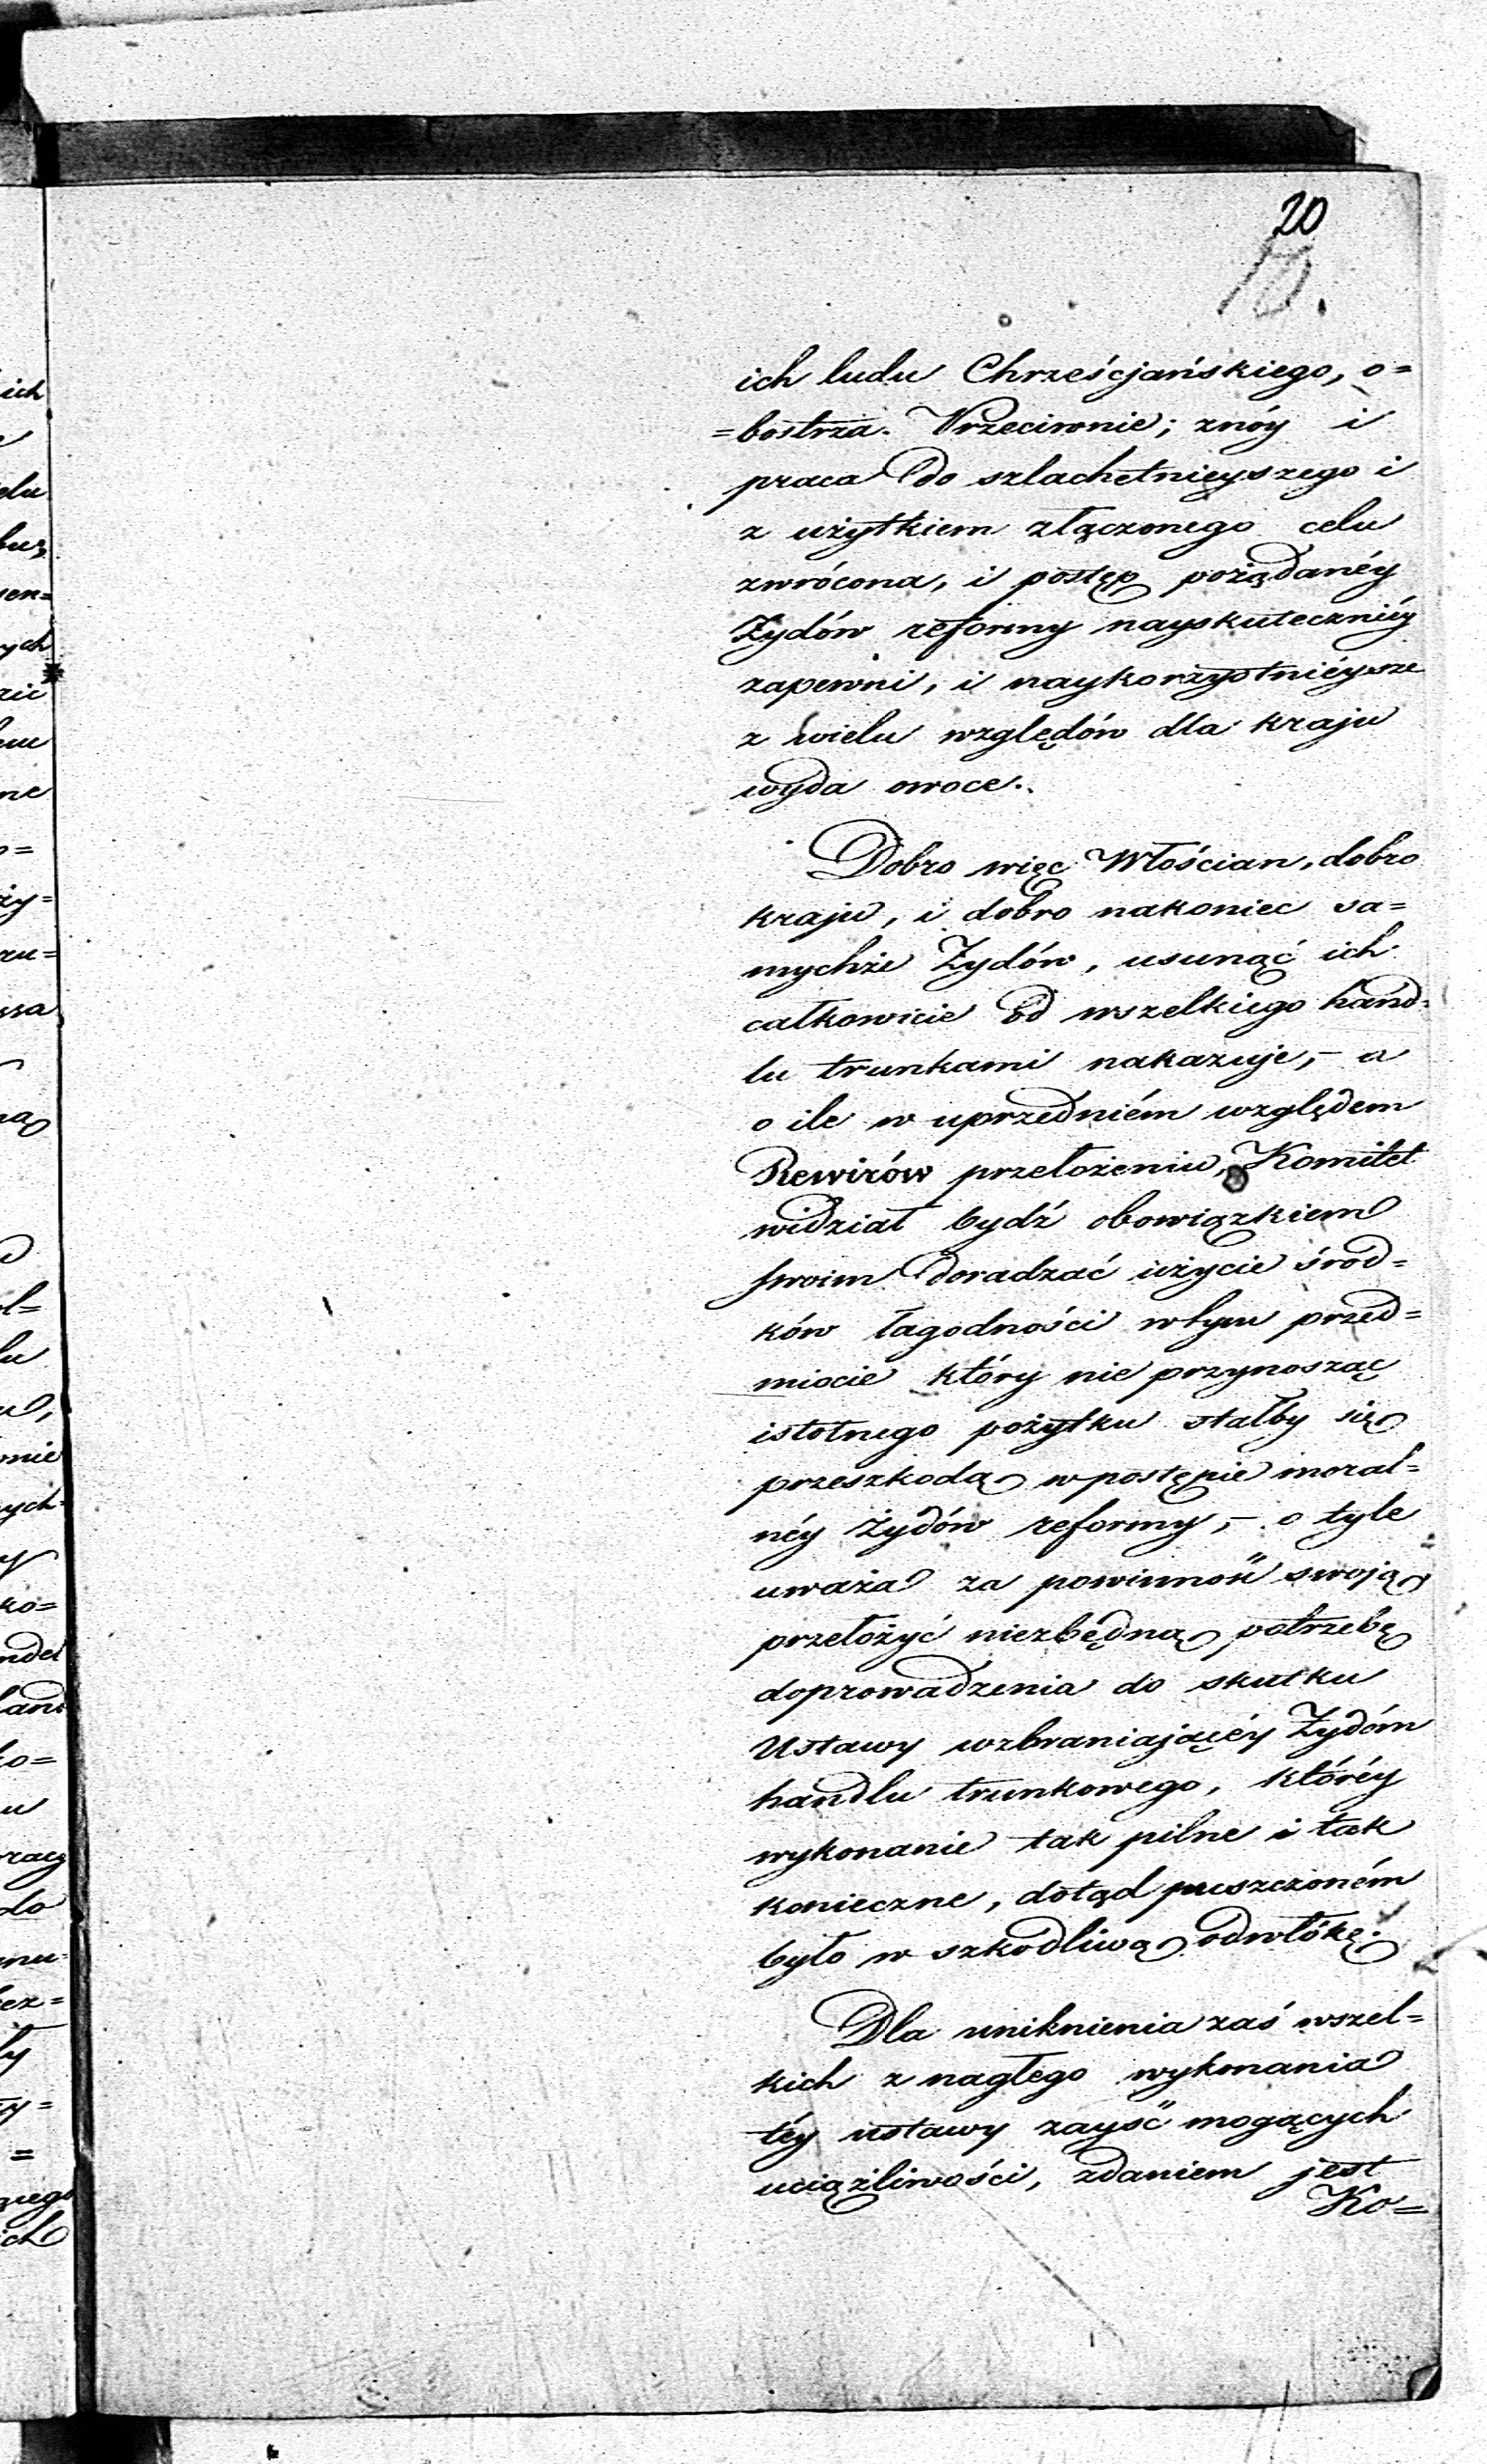 20
10.
ich ludu Chrześcjańskiego, o=
=bostrza. Przeciwnie; znóy i
praca do szlachetnieyszego i
z użytkiem złączonego celu
zwrócona, i postęp pożądanéy
Żydów reformy nayskuteczniéy
zapewni, i naykorzystniéysze
z wielu względów dla kraju
wyda owoce.
Dobro więc Włościan, dobro
kraju, i dobro nakoniec sa=
mychże Żydów, usunąć ich
całkowicie od wszelkiego hand=
lu trunkami nakazuje, – a
o ile w uprzedniém względem
Rewirów przełożeniu, Komitet
widział bydź obowiązkiem
swoim doradzać użycie środ=
ków łagodności w tym przed=
miocie który nie przynosząc
istotnego pożytku stałby się
przeszkodą w postępie moral=
néy Żydów reformy, – o tyle
uważa za powinność swoją
przełożyć niezbędną potrzebę
doprowadzenia do skutku
Ustawy wzbraniającéy Żydóm
handlu trunkowego, któréy
wykonanie tak pilne i tak
konieczne, dotąd puszczoném
było w szkodliwą odwłókę.
Dla uniknienia zaś wszel=
kich z nagłego wykonania
téy ustawy zayść mogących
uciążliwości, zdaniem jest
Ko=